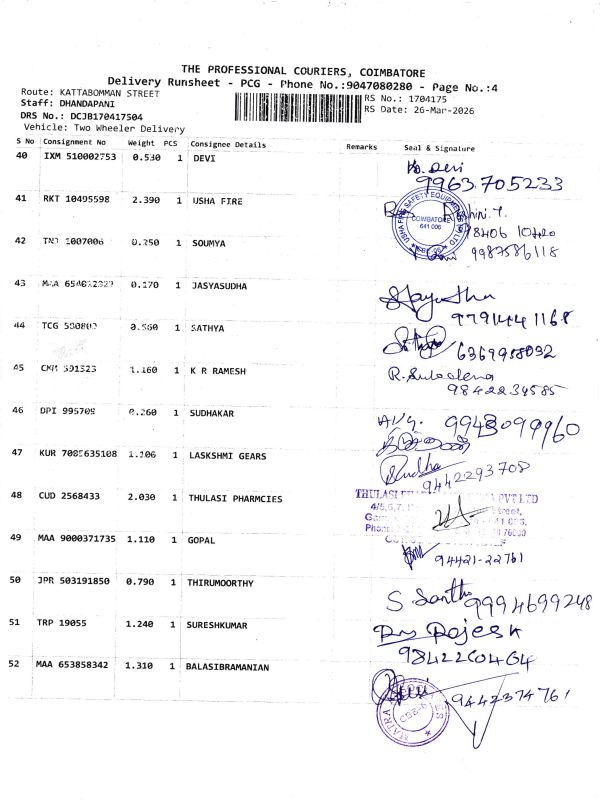 THE PROFESSIONAL COURIERS, COIMBATORE
Delivery Runsheet - PCG - Phone No.:9047080280 - Page No.:4
Route: KATTABOMMAN STREET
Staff: DHANDAPANI
DRS No.: DCJB170417504
Vehicle: Two Wheeler Delivery
RS No.: 1704175
RS Date: 26-Mar-2026
S No Consignment No Weight PCS Consignee Details Remarks Seal & Signature
40 IXM 510002753 0.530 1 DEVI
9963705233
41 RKT 10495598 2.390 1 USHA FIRE
USHA FIRE SAFETY EQUIPMENTS
COIMBATORE
641 006
98406 10420
42 1007006 0.250 1 SOUMYA
9987586118
43 MAA 0.170 1 JASYASUDHA
9791441168
44 TCG 0.560 1 SATHYA
6369958032
45 1.160 1 K R RAMESH
R. Sulochena
9842234585
46 DPI 995709 0.260 1 SUDHAKAR
9943099960
47 KUR 7005635108 1 LASKSHMI GEARS
9442293708
48 CUD 2568433 2.030 1 THULASI PHARMCIES
THULASI PVT LTD
49 MAA 9000371735 1.110 1 GOPAL
94421-22761
50 JPR 503191850 0.790 1 THIRUMOORTHY
S. Santh
9994699248
51 TRP 19055 1.240 1 SURESHKUMAR
Rajesk
9842260464
52 MAA 653858342 1.310 1 BALASIBRAMANIAN
9442374761